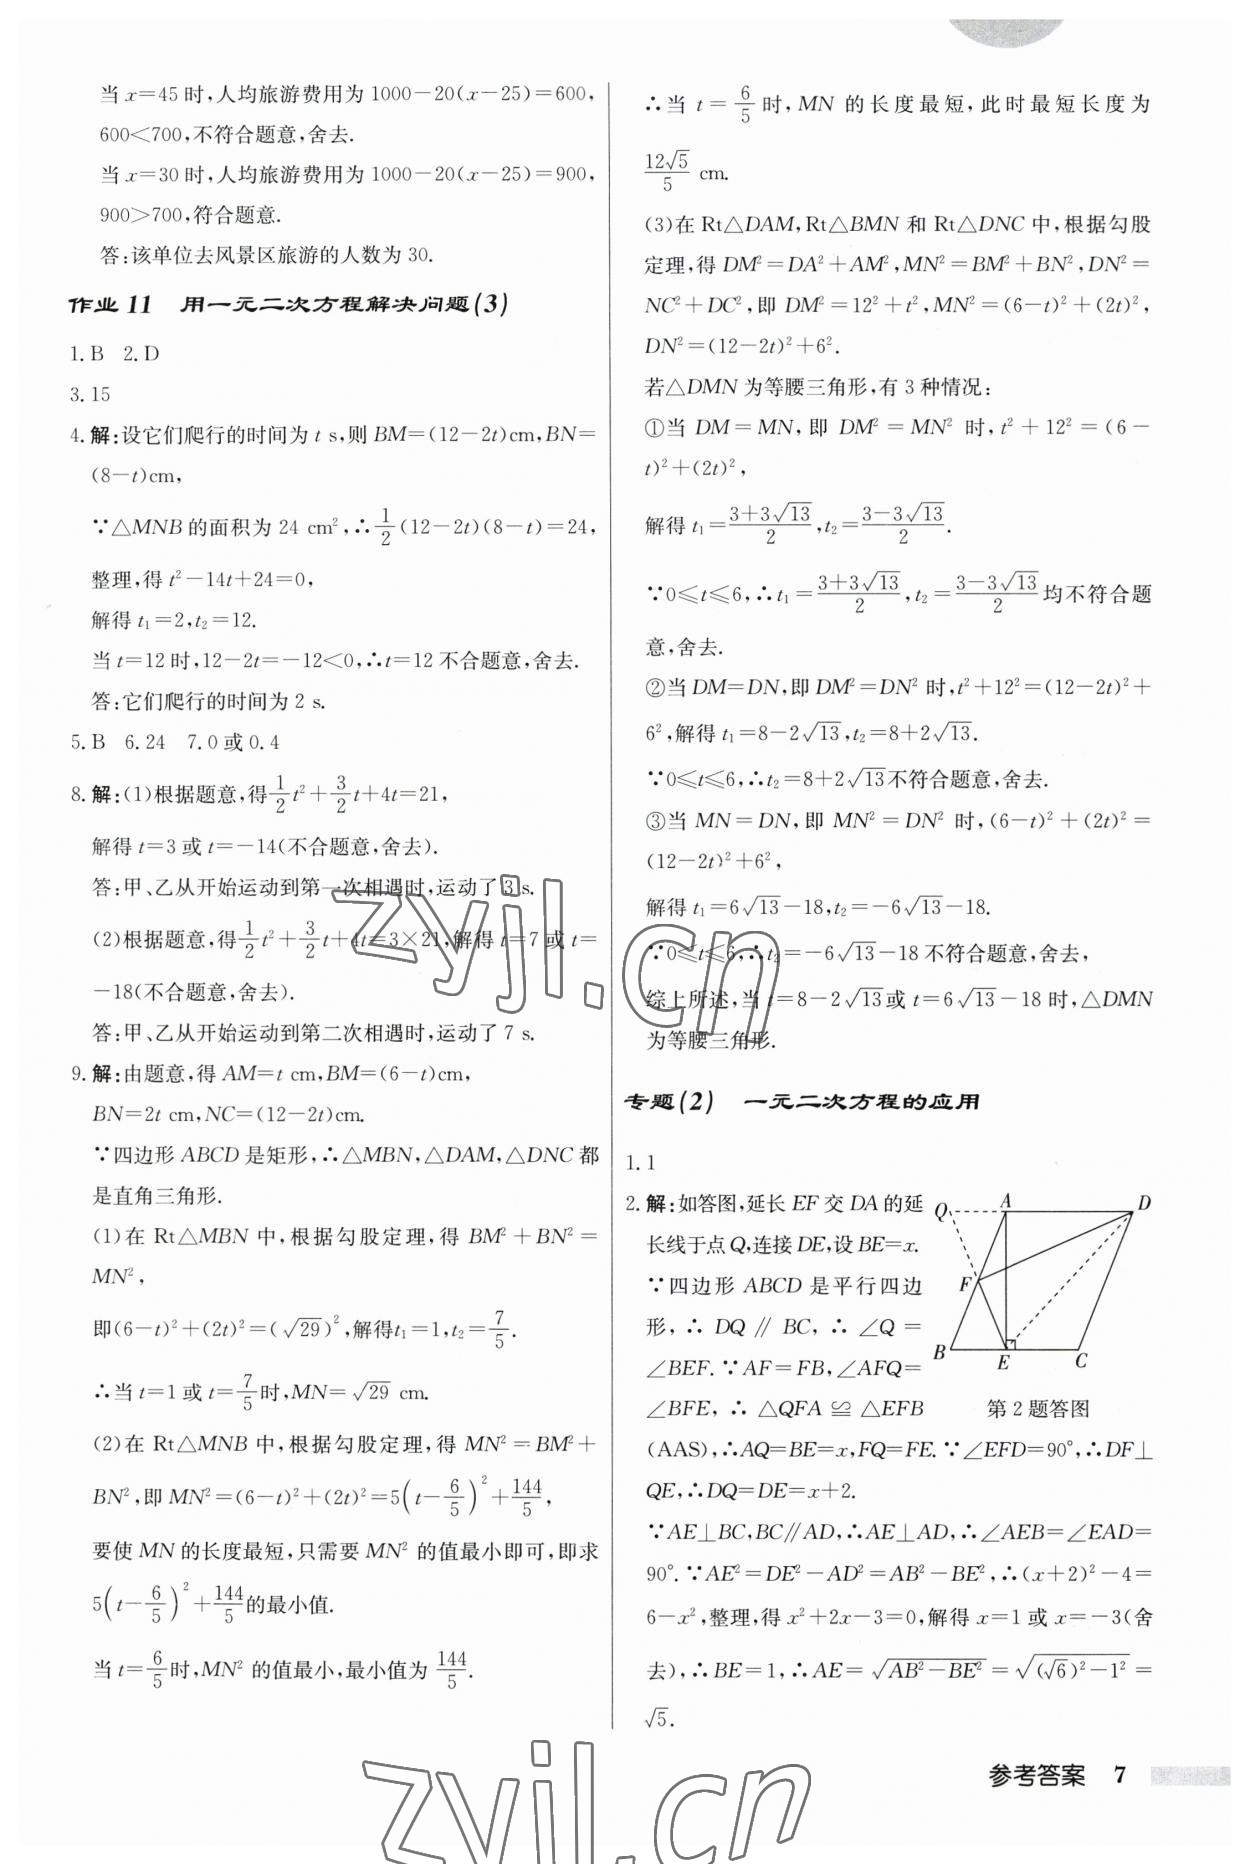 当 x=45 时,人均旅游费用为 1000-20(x-25)=600,
600<700,不符合题意,舍去.
当 x=30 时,人均旅游费用为 1000-20(x-25)=900,
900>700,符合题意.
答:该单位去风景区旅游的人数为 30.
作业 11 用一元二次方程解决问题(3)
1.B 2.D
3.15
4.解:设它们爬行的时间为 t s,则 BM=(12-2t)cm,BN=
(8-t)cm,
∵△MNB 的面积为 24 cm²,∴1/2(12-2t)(8-t)=24,
整理,得 t²-14t+24=0,
解得 t₁=2,t₂=12.
当 t=12 时,12-2t=-12<0,∴t=12 不合题意,舍去.
答:它们爬行的时间为 2 s.
5.B 6.24 7.0 或 0.4
8.解:(1)根据题意,得1/2t²+3/2t+4t=21,
解得 t=3 或 t=-14(不合题意,舍去).
答:甲、乙从开始运动到第一次相遇时,运动了 3 s.
(2)根据题意,得1/2t²+3/2t+4t=3×21,解得 t=7 或 t=
-18(不合题意,舍去).
答:甲、乙从开始运动到第二次相遇时,运动了 7 s.
9.解:由题意,得 AM=t cm,BM=(6-t)cm,
BN=2t cm,NC=(12-2t)cm.
∵四边形 ABCD 是矩形,∴△MBN,△DAM,△DNC 都
是直角三角形.
(1)在 Rt△MBN 中,根据勾股定理,得 BM²+BN²=
MN²,
即(6-t)²+(2t)²=(√29)²,解得t₁=1,t₂=7/5.
∴当 t=1 或 t=7/5时,MN=√29 cm.
(2)在 Rt△MNB 中,根据勾股定理,得 MN²=BM²+
BN²,即 MN²=(6-t)²+(2t)²=5(t-6/5)²+144/5,
要使 MN 的长度最短,只需要 MN² 的值最小即可,即求
5(t-6/5)²+144/5的最小值.
当 t=6/5时,MN² 的值最小,最小值为 144/5.
∴当 t=6/5 时,MN 的长度最短,此时最短长度为
12√5/5 cm.
(3)在 Rt△DAM,Rt△BMN 和 Rt△DNC 中,根据勾股
定理,得 DM²=DA²+AM²,MN²=BM²+BN²,DN²=
NC²+DC²,即 DM²=12²+t²,MN²=(6-t)²+(2t)²,
DN²=(12-2t)²+6².
若△DMN 为等腰三角形,有 3 种情况:
①当 DM=MN,即 DM²=MN² 时,t²+12²=(6-
t)²+(2t)²,
解得 t₁=(3+3√13)/2,t₂=(3-3√13)/2.
∵0≤t≤6,∴t₁=(3+3√13)/2,t₂=(3-3√13)/2均不符合题
意,舍去.
②当 DM=DN,即 DM²=DN² 时,t²+12²=(12-2t)²+
6²,解得 t₁=8-2√13,t₂=8+2√13.
∵0≤t≤6,∴t₂=8+2√13不符合题意,舍去.
③当 MN=DN,即 MN²=DN² 时,(6-t)²+(2t)²=
(12-2t)²+6²,
解得 t₁=6√13-18,t₂=-6√13-18.
∵0≤t≤6,∴t₂=-6√13-18 不符合题意,舍去,
综上所述,当 t=8-2√13或 t=6√13-18 时,△DMN
为等腰三角形.
专题(2) 一元二次方程的应用
1.1
2.解:如答图,延长 EF 交 DA 的延
长线于点 Q,连接 DE,设 BE=x.
∵四边形 ABCD 是平行四边
形,∴ DQ∥BC,∴ ∠Q=
∠BEF.∵AF=FB,∠AFQ=
∠BFE,∴ △QFA≌△EFB
(AAS),∴AQ=BE=x,FQ=FE.∵∠EFD=90°,∴DF⊥
QE,∴DQ=DE=x+2.
∵AE⊥BC,BC∥AD,∴AE⊥AD,∴∠AEB=∠EAD=
90°.∵AE²=DE²-AD²=AB²-BE²,∴(x+2)²-4=
6-x²,整理,得 x²+2x-3=0,解得 x=1 或 x=-3(舍
去),∴BE=1,∴AE=√(AB²-BE²)=√((√6)²-1²)=
√5.
Q A D
F
B E C
第 2 题答图
zyjl.cn
zyjl.cn
参考答案 7